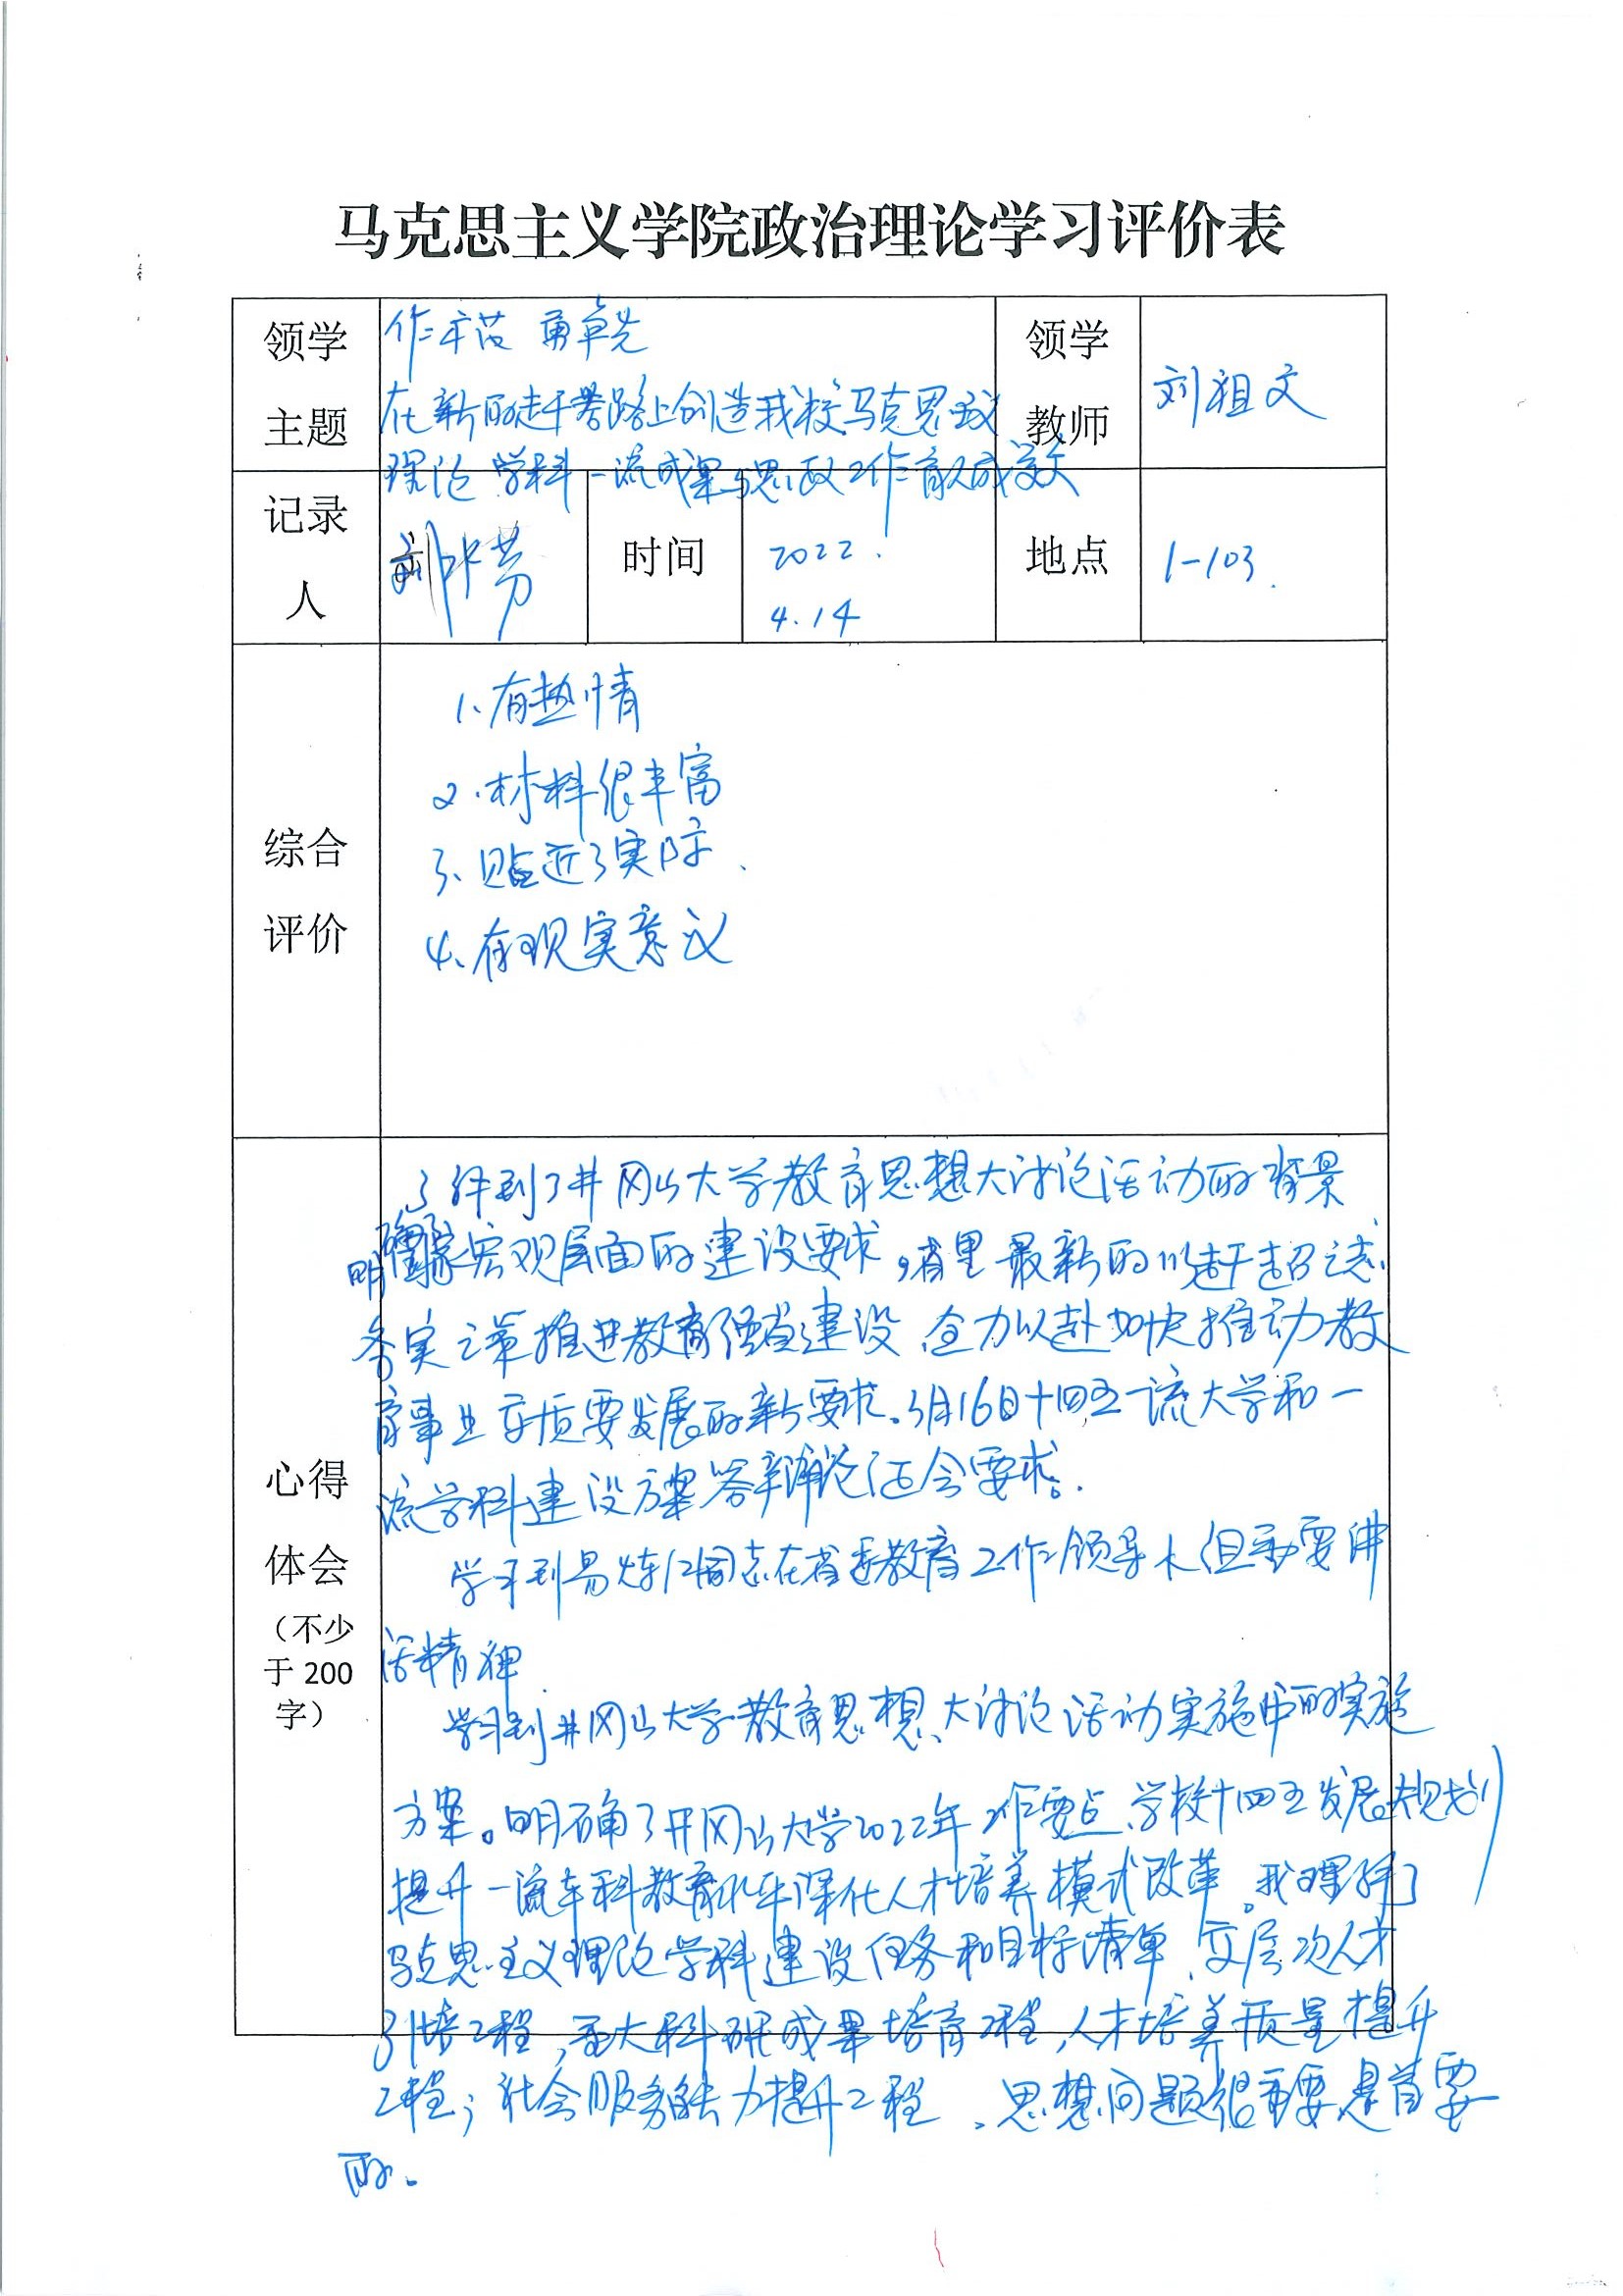 马克思主义学院政治理论学习评价表
领学主题
作示范 勇争先
在新的赶考路上创造我校马克思主义
理论学科一流成果与思政工作育人成效
领学教师
刘祖文
记录人
芳
时间
2022.
4.14
地点
1-103.
综合评价
1、有热情
2.材料很丰富
3、贴近了实际、
4、有现实意义
心得体会
(不少于200字)
了解到了井冈山大学教育思想大讨论活动的背景
明确国家宏观层面的建设要求,省里最新的以赶超之志
务实之策推进教育强省建设、全力以赴加快推动教
育事业高质量发展的新要求。3月16日十四五一流大学和一
流学科建设方案答辩论证会要求。
学习到易炼红同志在省委教育工作领导小组重要讲
话精神
学习到井冈山大学教育思想大讨论活动实施中的实施
方案。明确了井冈山大学2022年工作要点、学校十四五发展规划
提升一流本科教育水平深化人才培养模式改革。我理解了
马克思主义理论学科建设任务和目标清单,高层次人才
引培工程,重大科研成果培育工程,人才培养质量提升
工程;社会服务能力提升工程、思想问题很重要是首要
的。